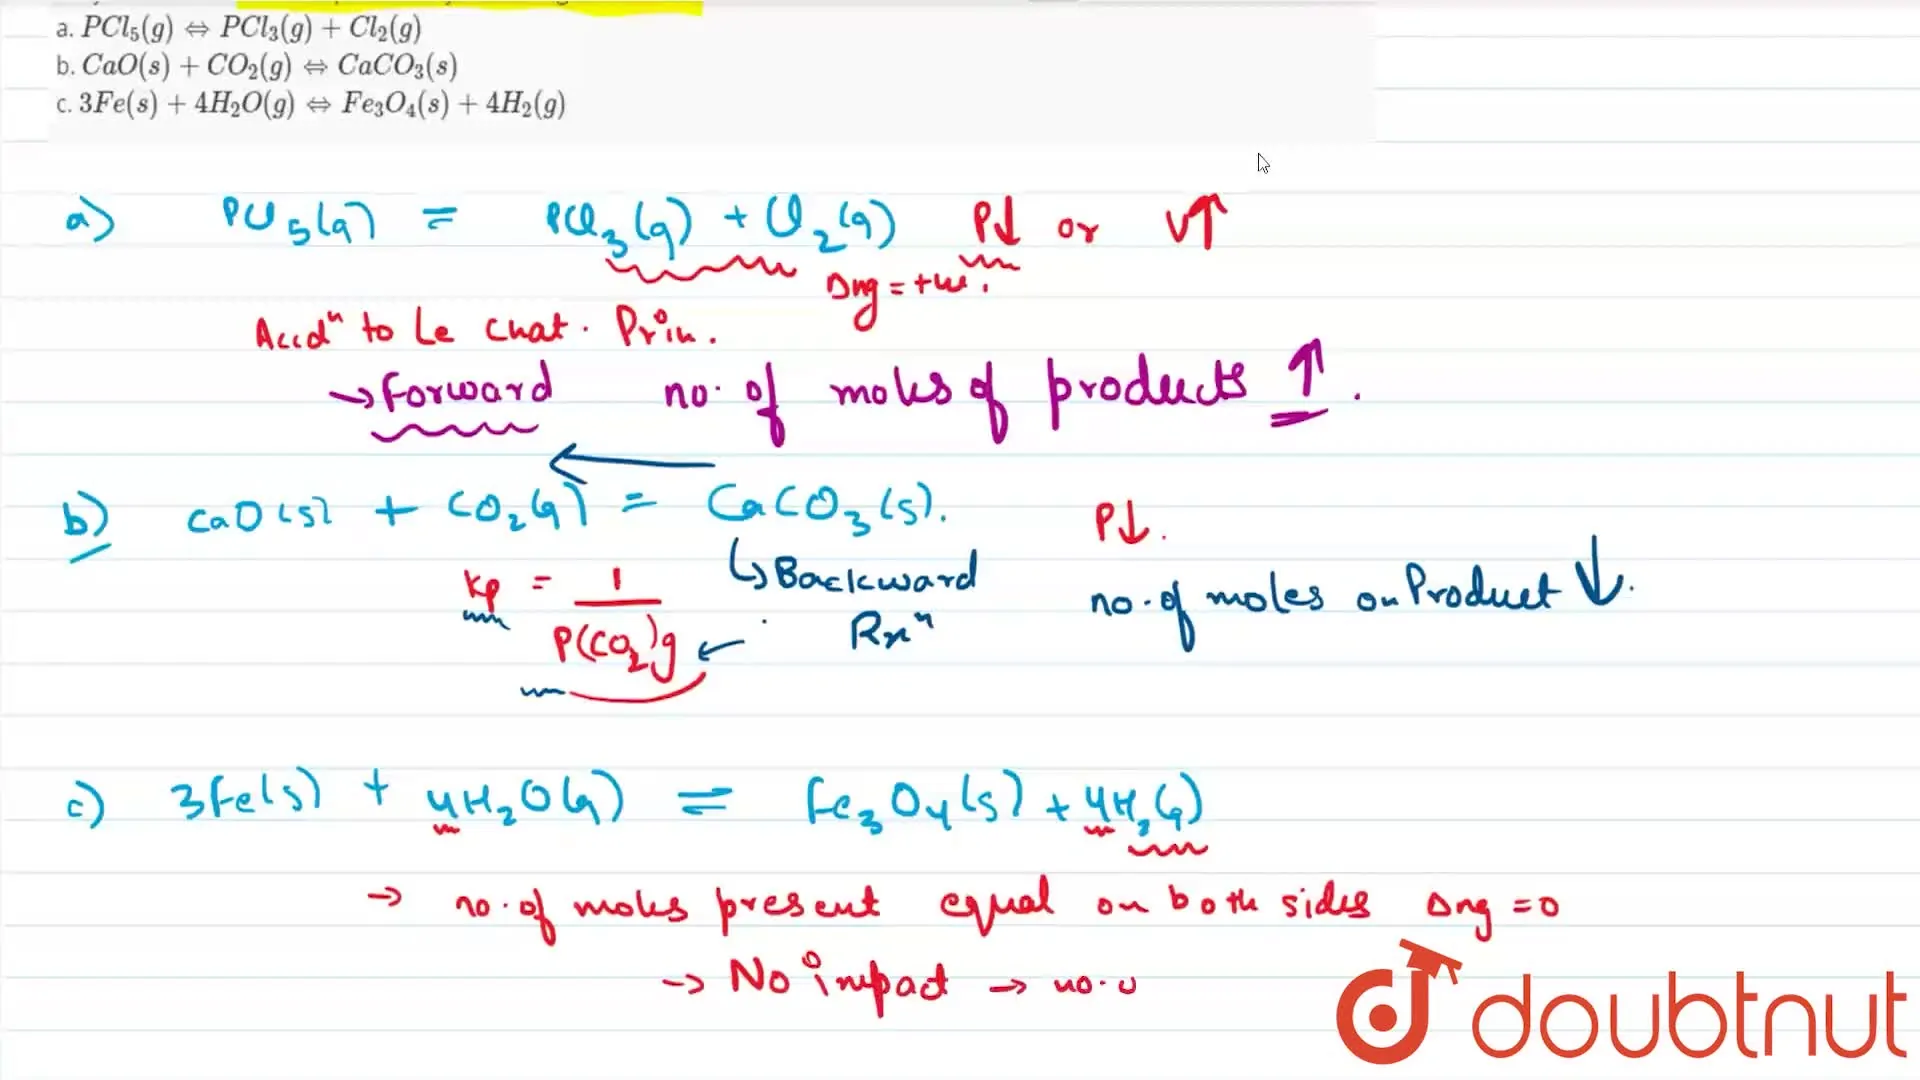 a. PCl₅(g) ⇔ PCl₃(g) + Cl₂(g)
b. CaO(s) + CO₂(g) ⇔ CaCO₃(s)
c. 3Fe(s) + 4H₂O(g) ⇔ Fe₃O₄(s) + 4H₂(g)
a) PCl₅(g) = PCl₃(g) + Cl₂(g) P↓ or V↑
Δng = +ve.
Accdⁿ to Le Chat. Prin.
→ Forward no. of moles of products ↑.
b) CaO(s) + CO₂(g) = CaCO₃(s). P↓.
Kp = 1 / P(CO₂)g ↳ Backward Rxⁿ no. of moles on Product ↓.
c) 3Fe(s) + 4H₂O(g) ⇌ Fe₃O₄(s) + 4H₂(g)
→ no. of moles present equal on both sides Δng = 0
→ No impact → no.
doubtnut